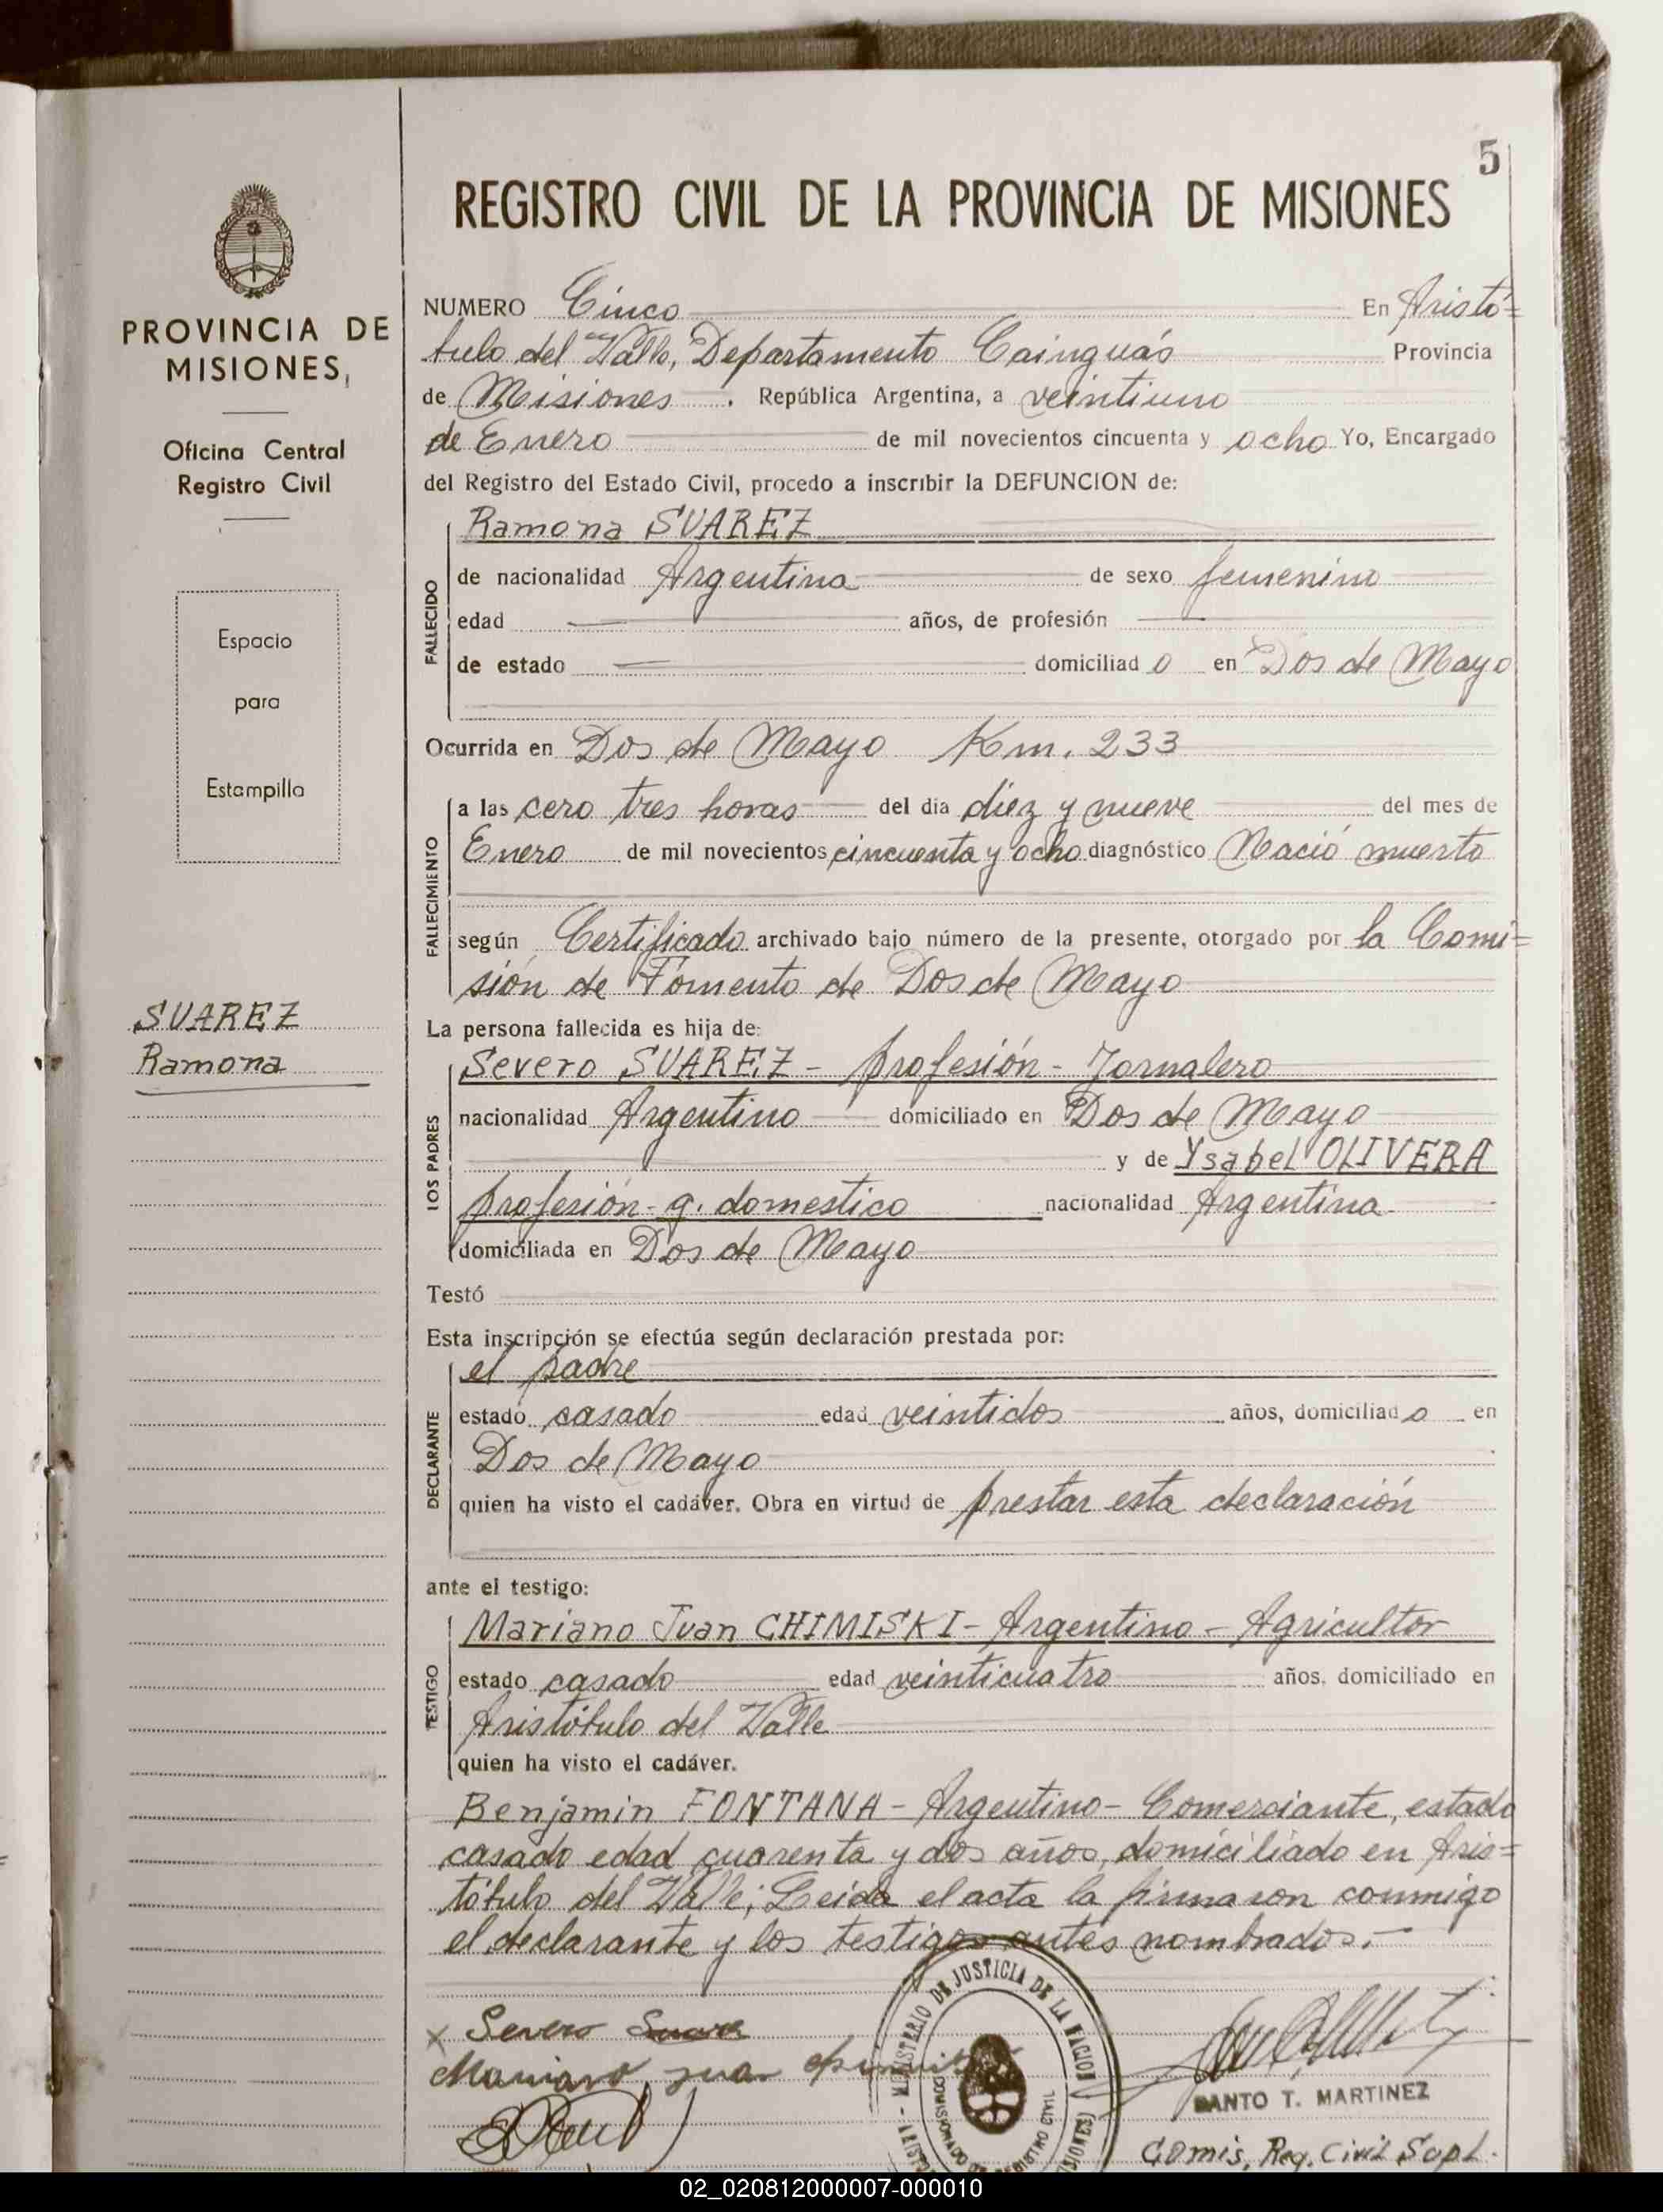 5
REGISTRO CIVIL DE LA PROVINCIA DE MISIONES
PROVINCIA DE
MISIONES,
Oficina Central
Registro Civil
Espacio
para
Estampilla
SUAREZ
Ramona
NUMERO Cinco En Aristó=
bulo del Valle, Departamento Cainguás Provincia
de Misiones. República Argentina, a veintiuno
de Enero de mil novecientos cincuenta y ocho Yo, Encargado
del Registro del Estado Civil, procedo a inscribir la DEFUNCION de:
FALLECIDO
Ramona SUAREZ
de nacionalidad Argentina de sexo femenino
edad años, de profesión
de estado domiciliado en Dos de Mayo
Ocurrida en Dos de Mayo Km. 233
FALLECIMIENTO
a las cero tres horas del dia diez y nueve del mes de
Enero de mil novecientos cincuenta y ocho diagnóstico Nació muerto
según Certificado archivado bajo número de la presente, otorgado por la Comi=
sión de Fomento de Dos de Mayo
La persona fallecida es hija de:
LOS PADRES
Severo SUAREZ - profesión - Jornalero
nacionalidad Argentino domiciliado en Dos de Mayo
y de Ysabel OLIVERA
profesión - q. domestico nacionalidad Argentina
domiciliada en Dos de Mayo
Testó
Esta inscripción se efectúa según declaración prestada por:
DECLARANTE
el padre
estado casado edad veintidos años, domiciliado en
Dos de Mayo
quien ha visto el cadáver. Obra en virtud de prestar esta declaración
ante el testigo:
TESTIGO
Mariano Juan CHIMISKI - Argentino - Agricultor
estado casado edad veinticuatro años, domiciliado en
Aristóbulo del Valle
quien ha visto el cadáver.
Benjamin FONTANA - Argentino - Comerciante, estado
casado edad cuarenta y dos años, domiciliado en Aris=
tóbulo del Valle; Leida el acta la firmaron conmigo
el declarante y los testigos antes nombrados.-
x Severo Suare
Mariano Juan
MINISTERIO DE JUSTICIA DE LA NACION
REGISTRO CIVIL
SANTO T. MARTINEZ
Comis. Reg. Civil Supl.
02_020812000007-000010